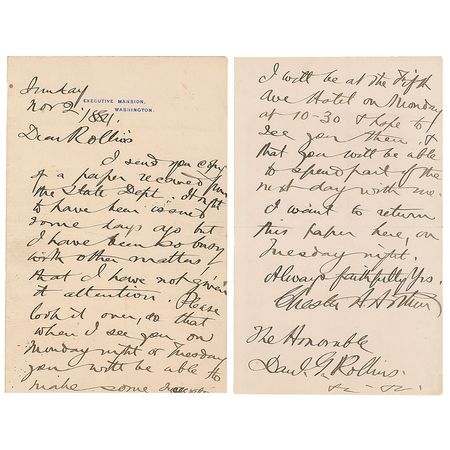 Sunday
EXECUTIVE MANSION,
WASHINGTON.
Nov 2/1884.
Dear Rollins
I send you copy
of a paper received from
the State Dept. It ought
to have been issued
some days ago but
I have been so busy
with other matters,
that I have not given
it attention. Please
look it over, so that
when I see you on
Monday night or Tuesday
you will be able to
make some
I will be at the Fifth
Ave Hotel on Monday
at 10-30 & hope to
see you then, &
that you will be able
to spend part of the
next day with me.
I want to return
this paper here, on
Tuesday night.
Always faithfully Yrs.
Chester A Arthur
The Honorable
Danl. G. Rollins.